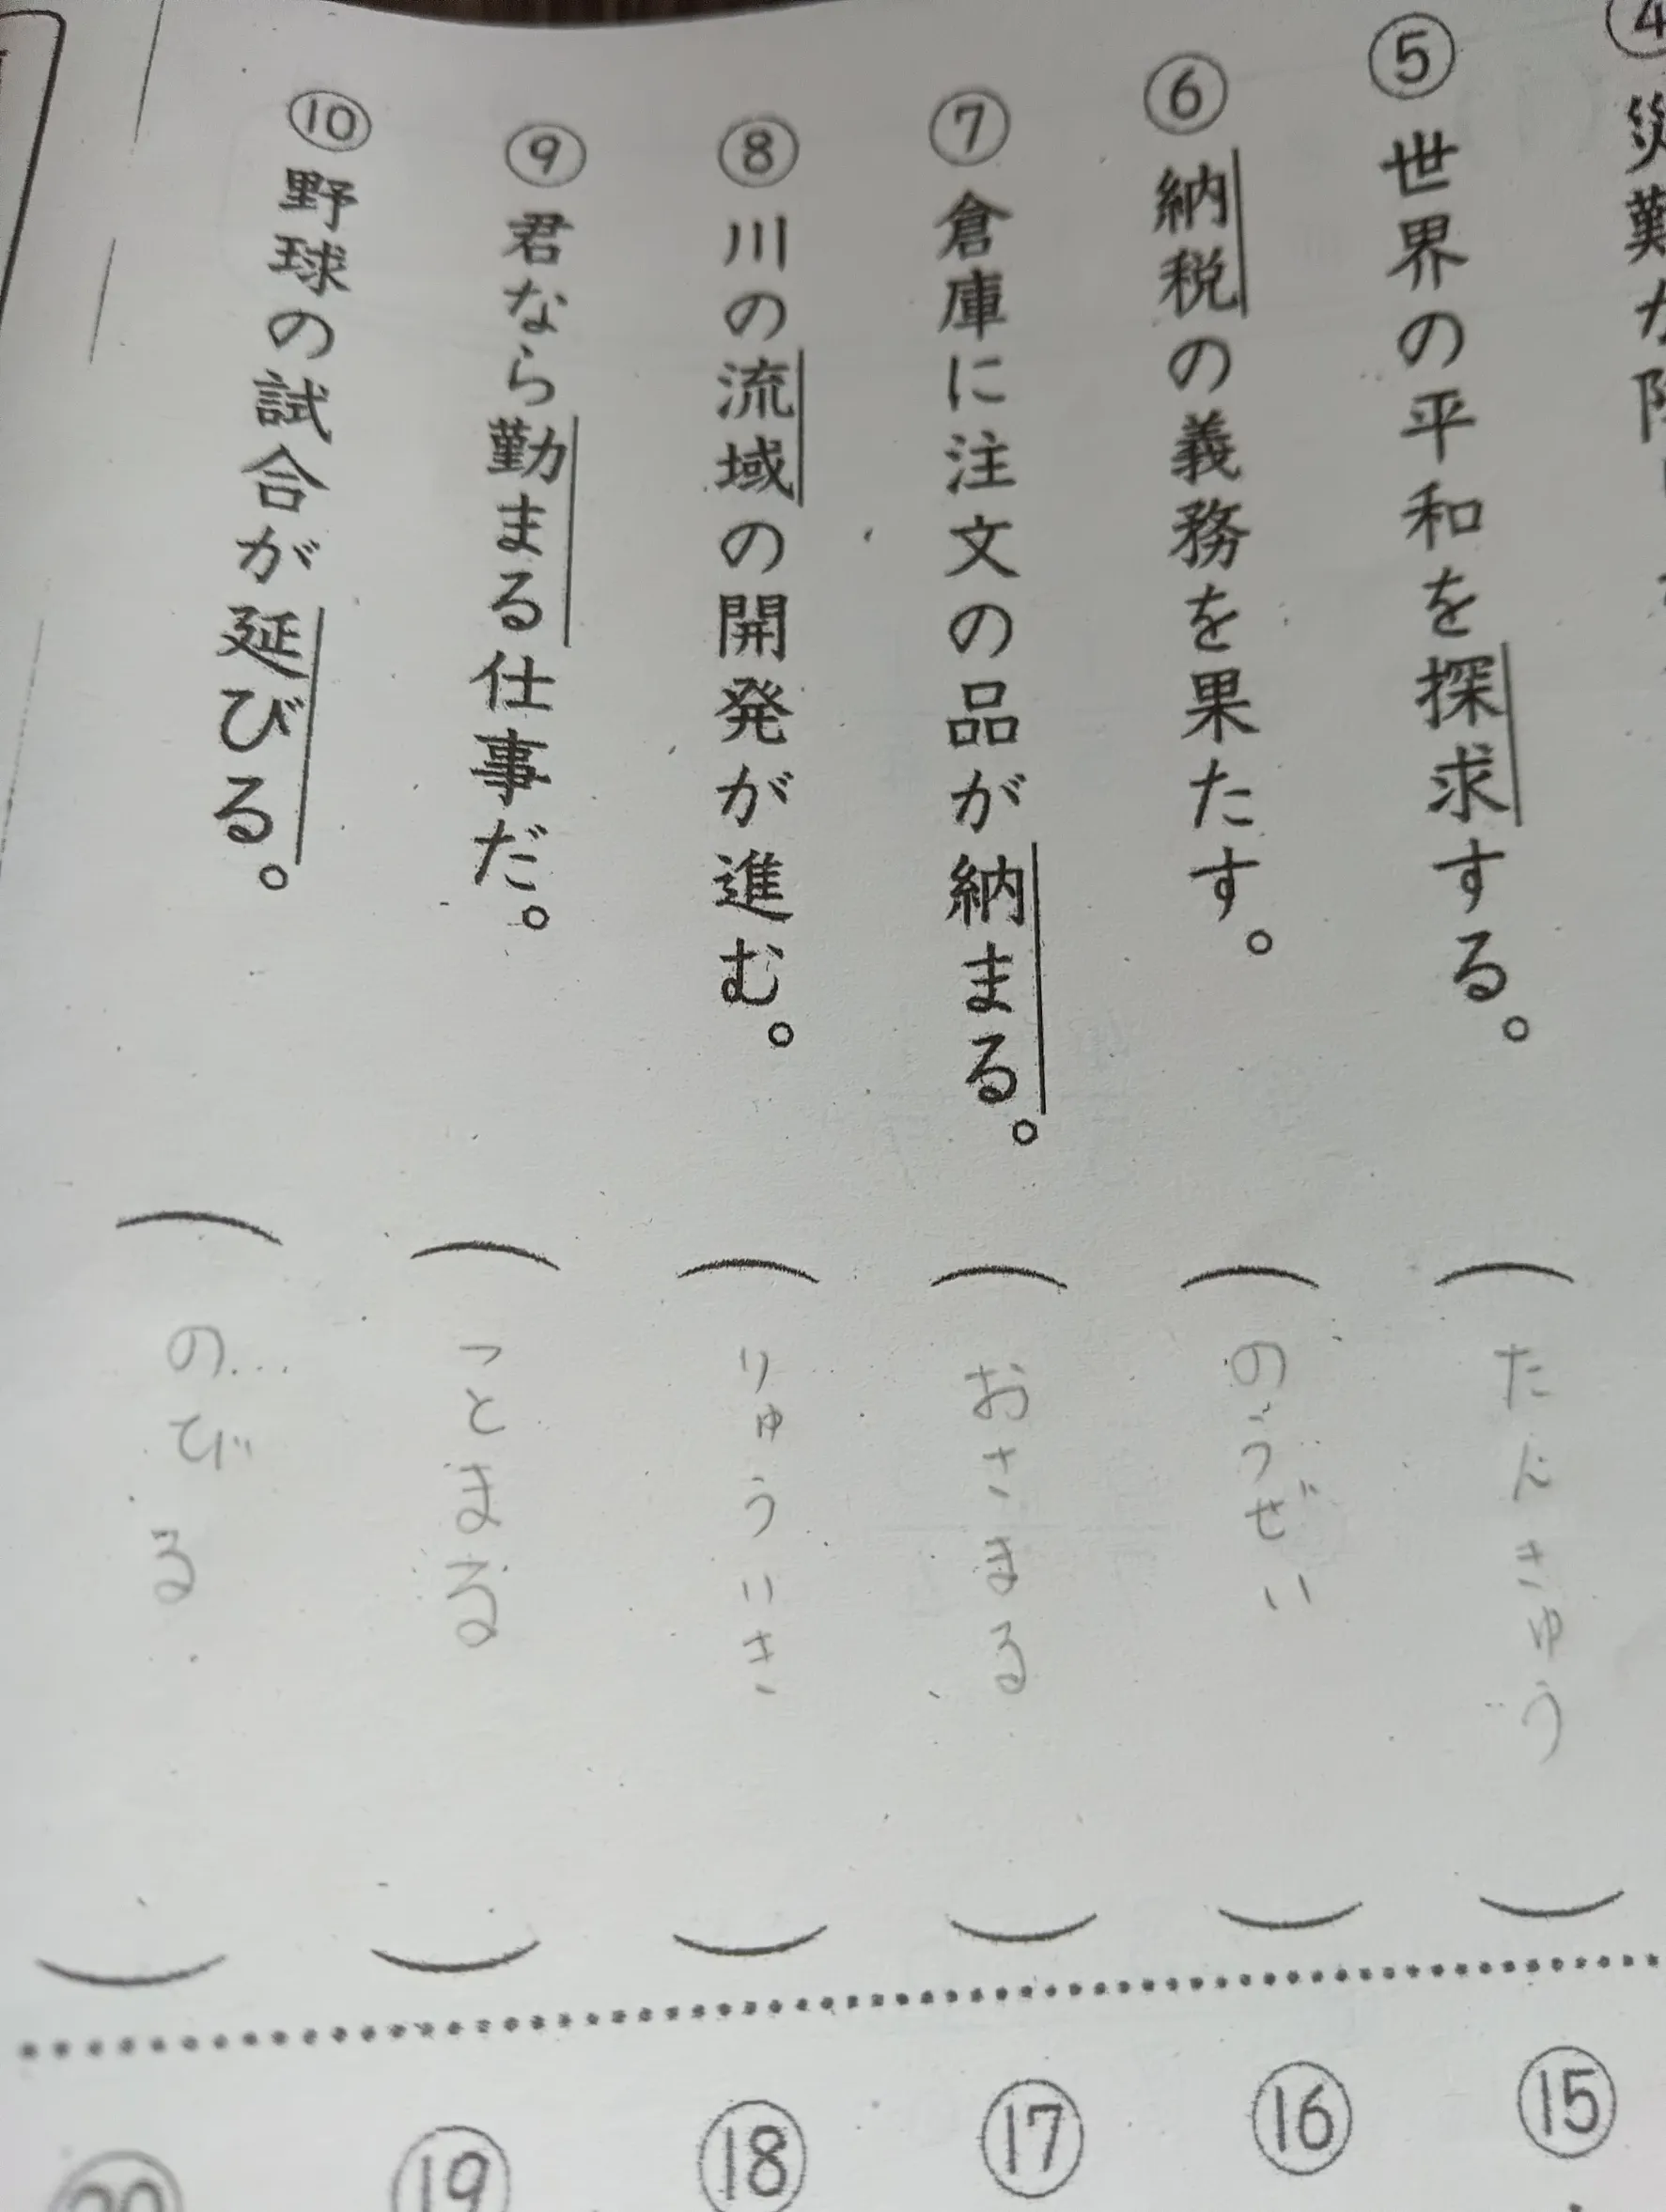 ④災難が
⑤世界の平和を探求する。(たんきゅう)
⑥納税の義務を果たす。(のうぜい)
⑦倉庫に注文の品が納まる。(おさまる)
⑧川の流域の開発が進む。(りゅういき)
⑨君なら勤まる仕事だ。(つとまる)
⑩野球の試合が延びる。(のびる)
⑮
⑯
⑰
⑱
⑲
⑳